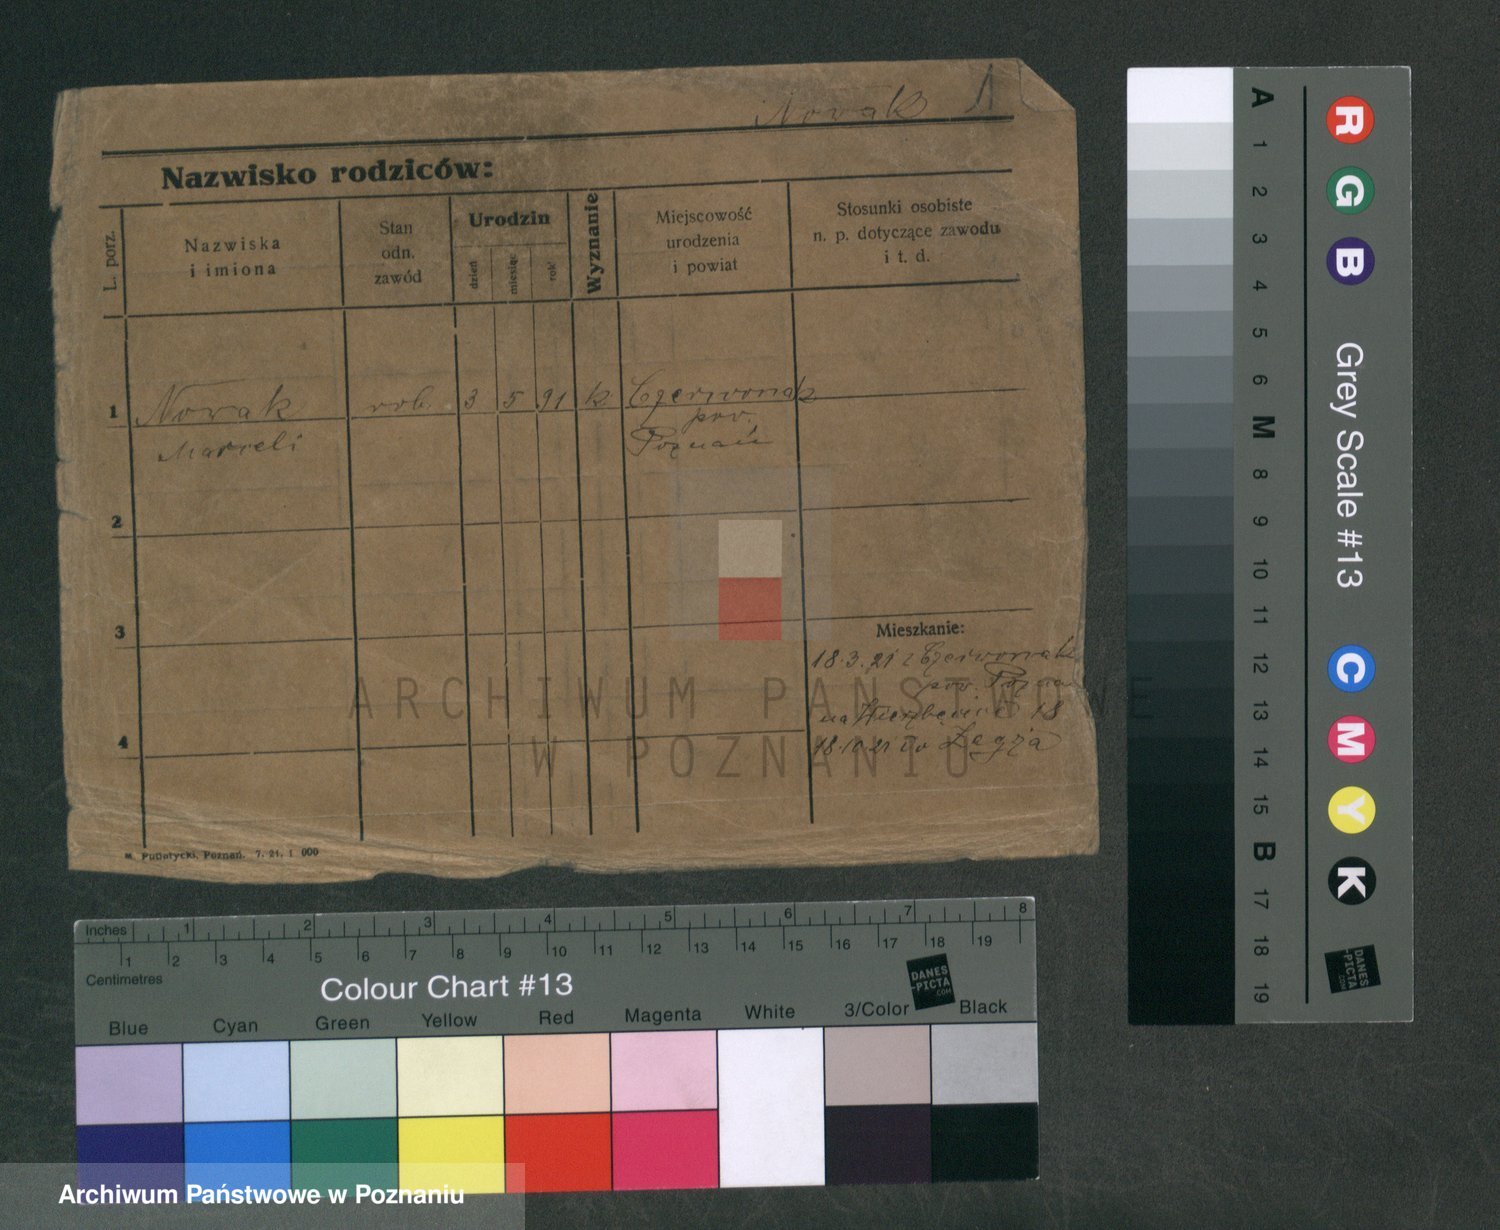 Nowak 1
Nazwisko rodziców:
L. porz.
Nazwiska
i imiona
Stan
odn.
zawód
Urodzin
dzień
miesiąc
rok
Wyznanie
Miejscowość
urodzenia
i powiat
Stosunki osobiste
n. p. dotyczące zawodu
i t. d.
1 Nowak rob. 3 5 91 k. Czerwonak
pow.
Marceli Poznań
2
3
4
Mieszkanie:
18.3.21 z Czerwonak
pow. Pozna
na 18
18.10.21 do
M. Putiatycki, Poznań. 7. 21. 1 000
ARCHIWUM PAŃSTWOWE
W POZNANIU
A 1 2 3 4 5 6 M 8 9 10 11 12 13 14 15 B 17 18 19
R G B Grey Scale #13 C M Y K
DANES
-PICTA
.COM
Inches 1 2 3 4 5 6 7 8
1 2 3 4 5 6 7 8 9 10 11 12 13 14 15 16 17 18 19
Centimetres
Colour Chart #13
DANES
-PICTA
.COM
Blue Cyan Green Yellow Red Magenta White 3/Color Black
Archiwum Państwowe w Poznaniu